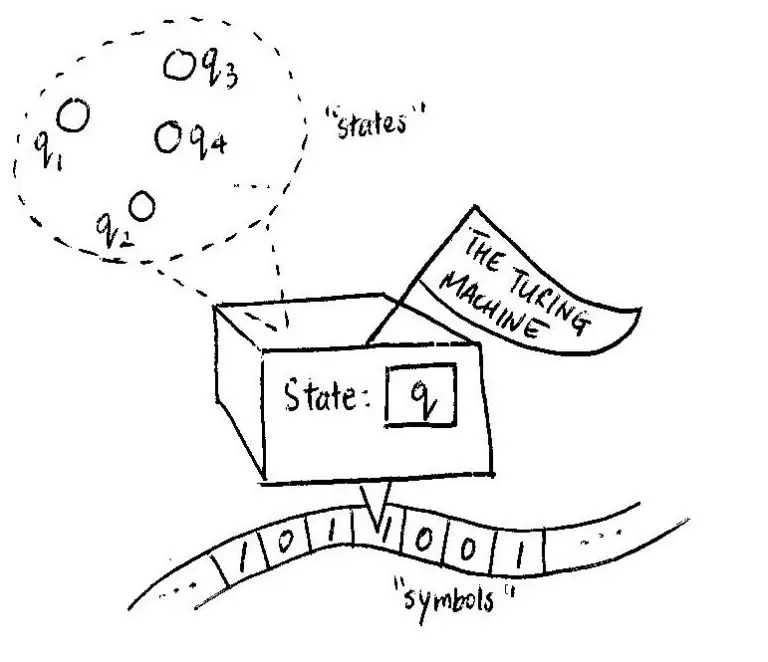 q3
q1
q4
"states"
q2
THE TURING
MACHINE
State: q
... 1 0 1 1 0 0 1 ...
"symbols"